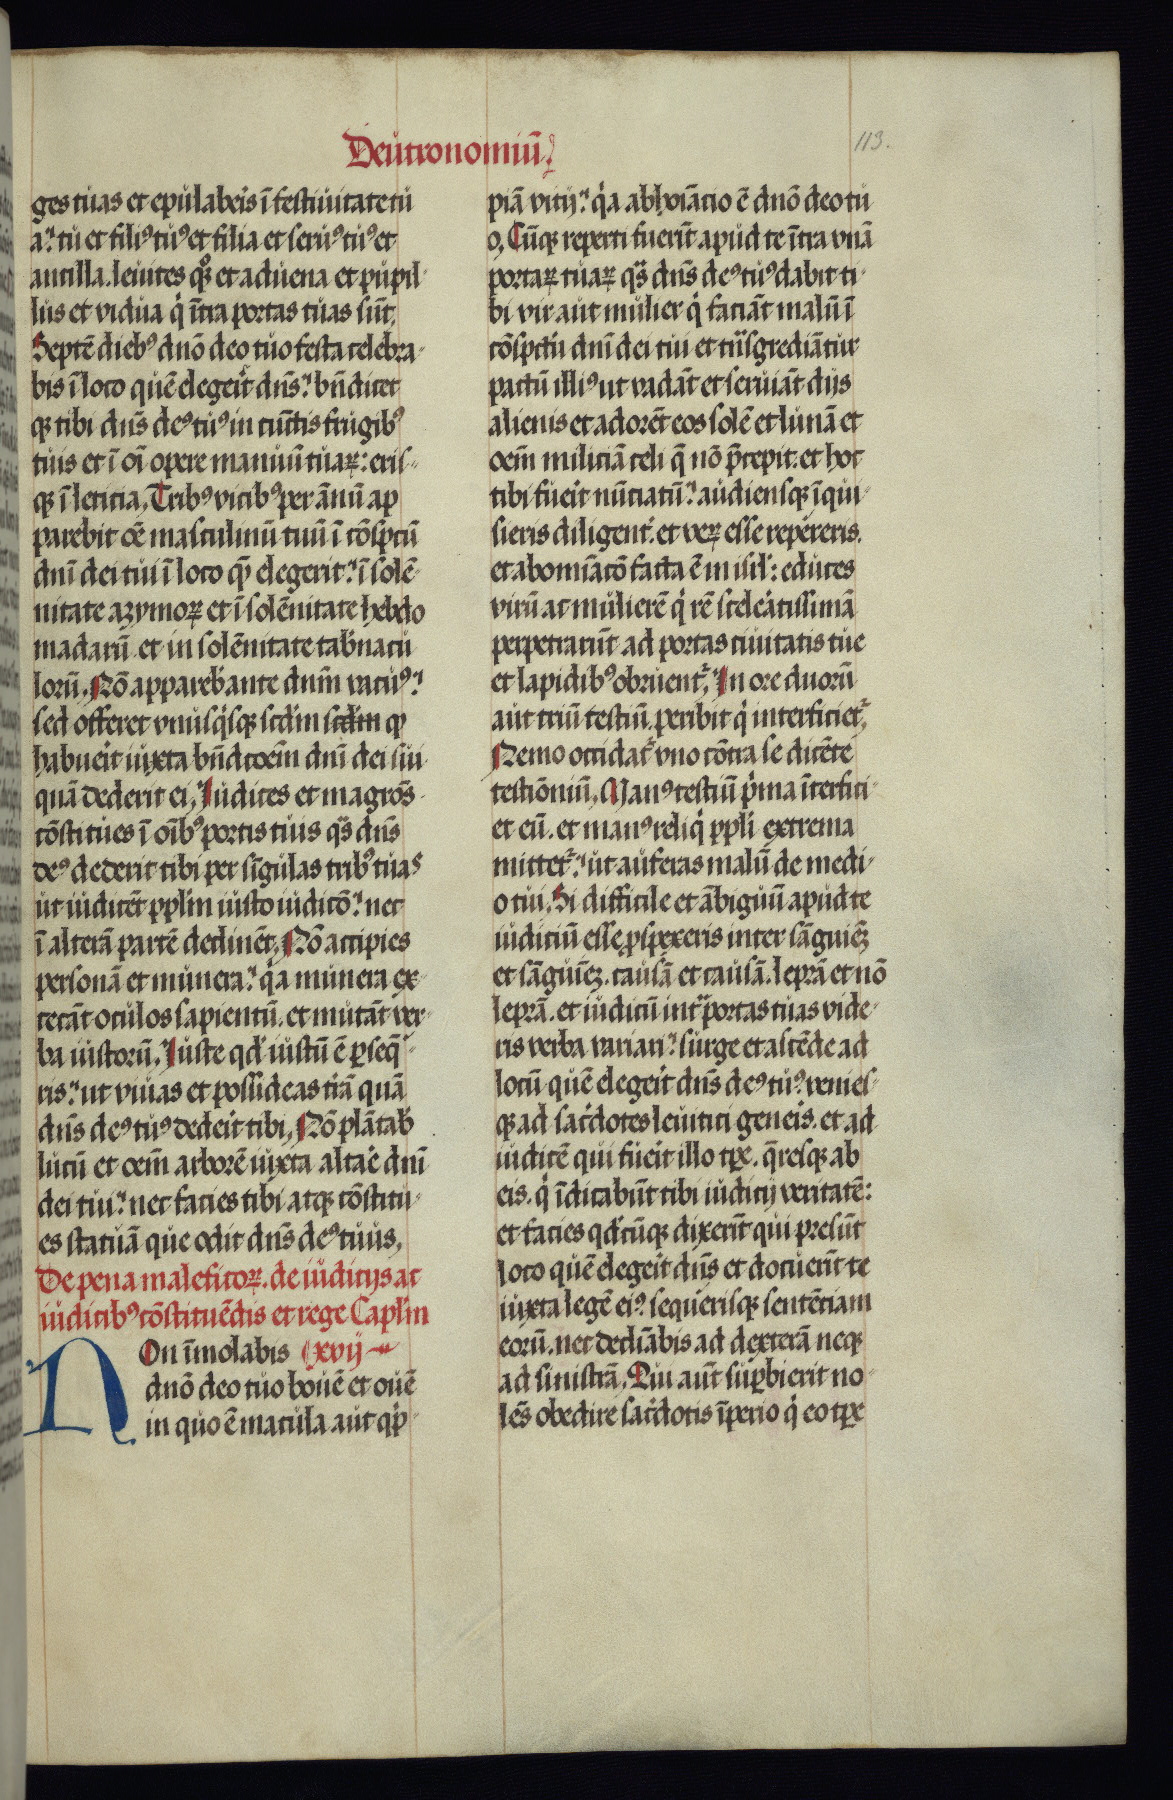 Deutronomiū
113.
ges tuas et epulabeis ī festiuitate tu
a. tu et fili᷒ tu᷒ et filia et seru᷒ tu᷒ et
ancilla. leuites qͦꝫ et aduena et pupil-
lus et vidua q̇ ītra portas tuas sūt.
Septē dieb᷒ dnō deo tuo festa celebra-
bis ī loco quē elegeīt dn̄s. bn̄dicet
qꝫ tibi dn̄s de᷒ tu᷒ in cūctis frugib᷒
tuis et ī oī opere manuū tuaꝝ: eris-
qꝫ ī leticia. Trib᷒ vicib᷒ per ānū ap
parebit oē masculinū tuū ī cōspectū
dnī dei tui ī loco qē elegerit. ī solē-
nitate azymoꝝ et ī solēnitate hebdo
madarū et in solēnitate tabnacu
lorū. Nō apparebˀ ante dnm̄ vacu᷒.
sed offeret vnusqˢsqꝫ scdm̄ scdm̄ qꝫ
habueīt iuxta bn̄dcoēm dnī dei sui
quā dederit ei. Iudices et magrōs
cōstitues ī oīb᷒ portis tuis qͣs dn̄s
de᷒ dederit tibi per sīgulas trib᷒ tuas
ut iudicēt pplm̄ iusto iudicō. nec
ī alterā partē declinēt. Nō accipies
personā et munera. qͥa munera ex-
cecāt oculos sapientū. et mutāt ver-
ba iustorū. Iuste qd̄ iustū ē ꝑseq̄-
ris. ut viuas et possideas trā quā
dn̄s de᷒ tu᷒ dedeīt tibi. Nō plātabˀ
lucū et oēm arborē iuxta altaē dnī
dei tui. nec facies tibi atqꝫ cōstitu-
es statuā que odit dn̄s de᷒ tuus.
De pena maleficoꝝ. de iudicijs ac
iudicib᷒ cōstituēdis et rege Caplm̄
Non īmolabis xvij
dnō deo tuo bouē et ouē
in quo ē macula aut qͥp-
piā vitij. qͥa abhoīatio ē dnō deo tu
o. Cūqꝫ reperti fuerīt apud te ītra vnā
portaꝝ tuaꝝ qͣs dn̄s de᷒ tu᷒ dabit ti-
bi vir aut mulier q̇ faciāt malū ī
cōspectu dnī dei tui et trāsgrediātur
pactū illi᷒ ut vadāt et seruiāt dijs
alienis et adorēt eos solē et lunā et
oēm miliciā celi q̄ nō p̄cepit. et hoc
tibi fueīt nūciatū. audiensqꝫ īqui-
sieris diligentˀ. et veꝝ esse repereris.
et abomīacō facta ē in isrl: educes
virū ac mulierē q̇ rē sceleātissimā
perpetrarūt ad portas ciuitatis tue
et lapidib᷒ obruentˀ. In ore duorū
aut triū testiū peribit q̇ interficietˀ.
Nemo occidatˀ vno cōtra se dicēte
testiōniū. Man᷒ testiū pͥma īterfici-
et eū. et man᷒ reliqͥ ppli extrema
mittetˀ. ut auferas malū de medi-
o tui. Si difficile et ābiguū apud te
iudiciū esse ꝓspexeris inter sāguīeꝫ
et sāguīeꝫ. causā et causā. leprā et nō
leprā. et iudicū intͣ portas tuas vide-
ris verba variari. surge et ascēde ad
locū quē elegeīt dn̄s de᷒ tu᷒. venies-
qꝫ ad sac̄dotes leuitici geneis. et ad
iudicē qui fueīt illo tp̄e. q̄resqꝫ ab
eis. q̇ īdicabūt tibi iudicij veritatē:
et facies qd̄cūqꝫ dixerīt qui presūt
loco quē elegeīt dn̄s et docuerīt te
iuxta legē ei᷒. sequerisqꝫ sentēciam
eorū. nec decliābis ad dexterā neqꝫ
ad sinistrā. Qui aūt suꝑbierit no-
lēs obedire sac̄dotis īperio q̇ eo tp̄e